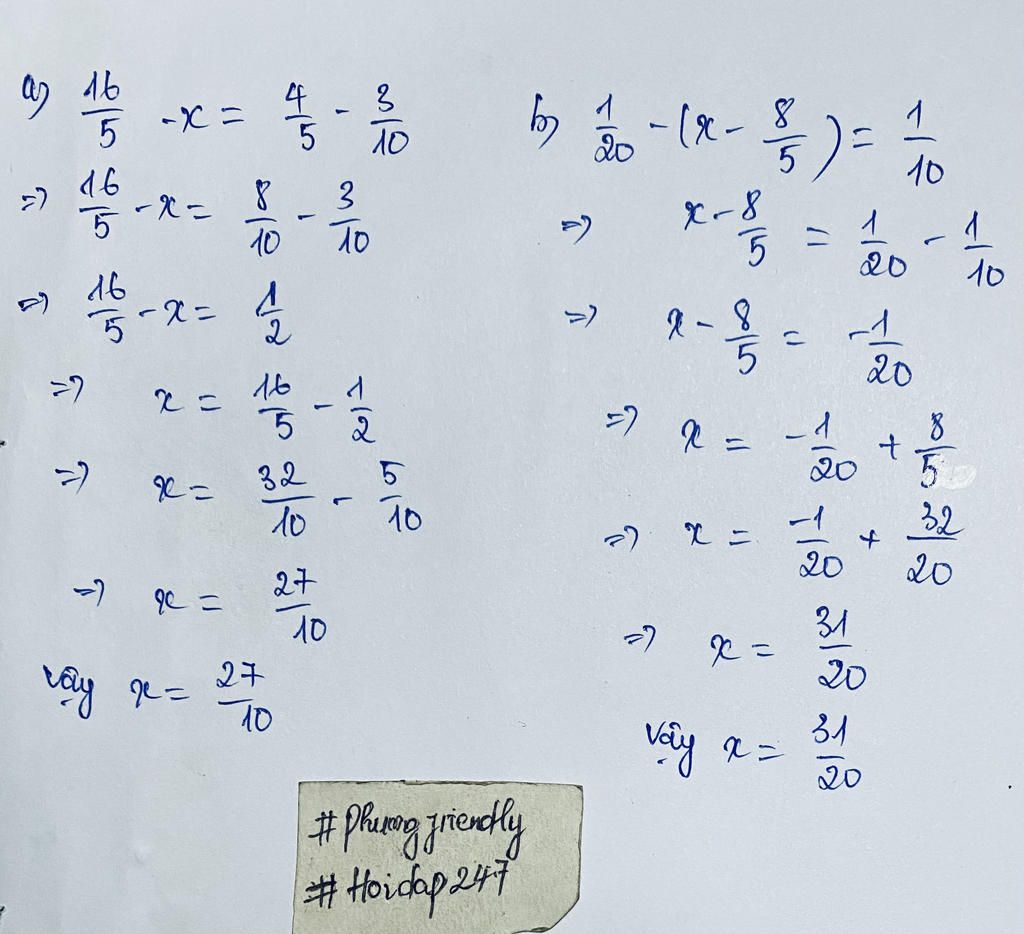 a) 16/5 - x = 4/5 - 3/10
=> 16/5 - x = 8/10 - 3/10
=> 16/5 - x = 1/2
=> x = 16/5 - 1/2
=> x = 32/10 - 5/10
=> x = 27/10
Vậy x = 27/10
b) 1/20 - (x - 8/5) = 1/10
=> x - 8/5 = 1/20 - 1/10
=> x - 8/5 = -1/20
=> x = -1/20 + 8/5
=> x = -1/20 + 32/20
=> x = 31/20
Vậy x = 31/20
# Phuong friendly
# Hoidap247